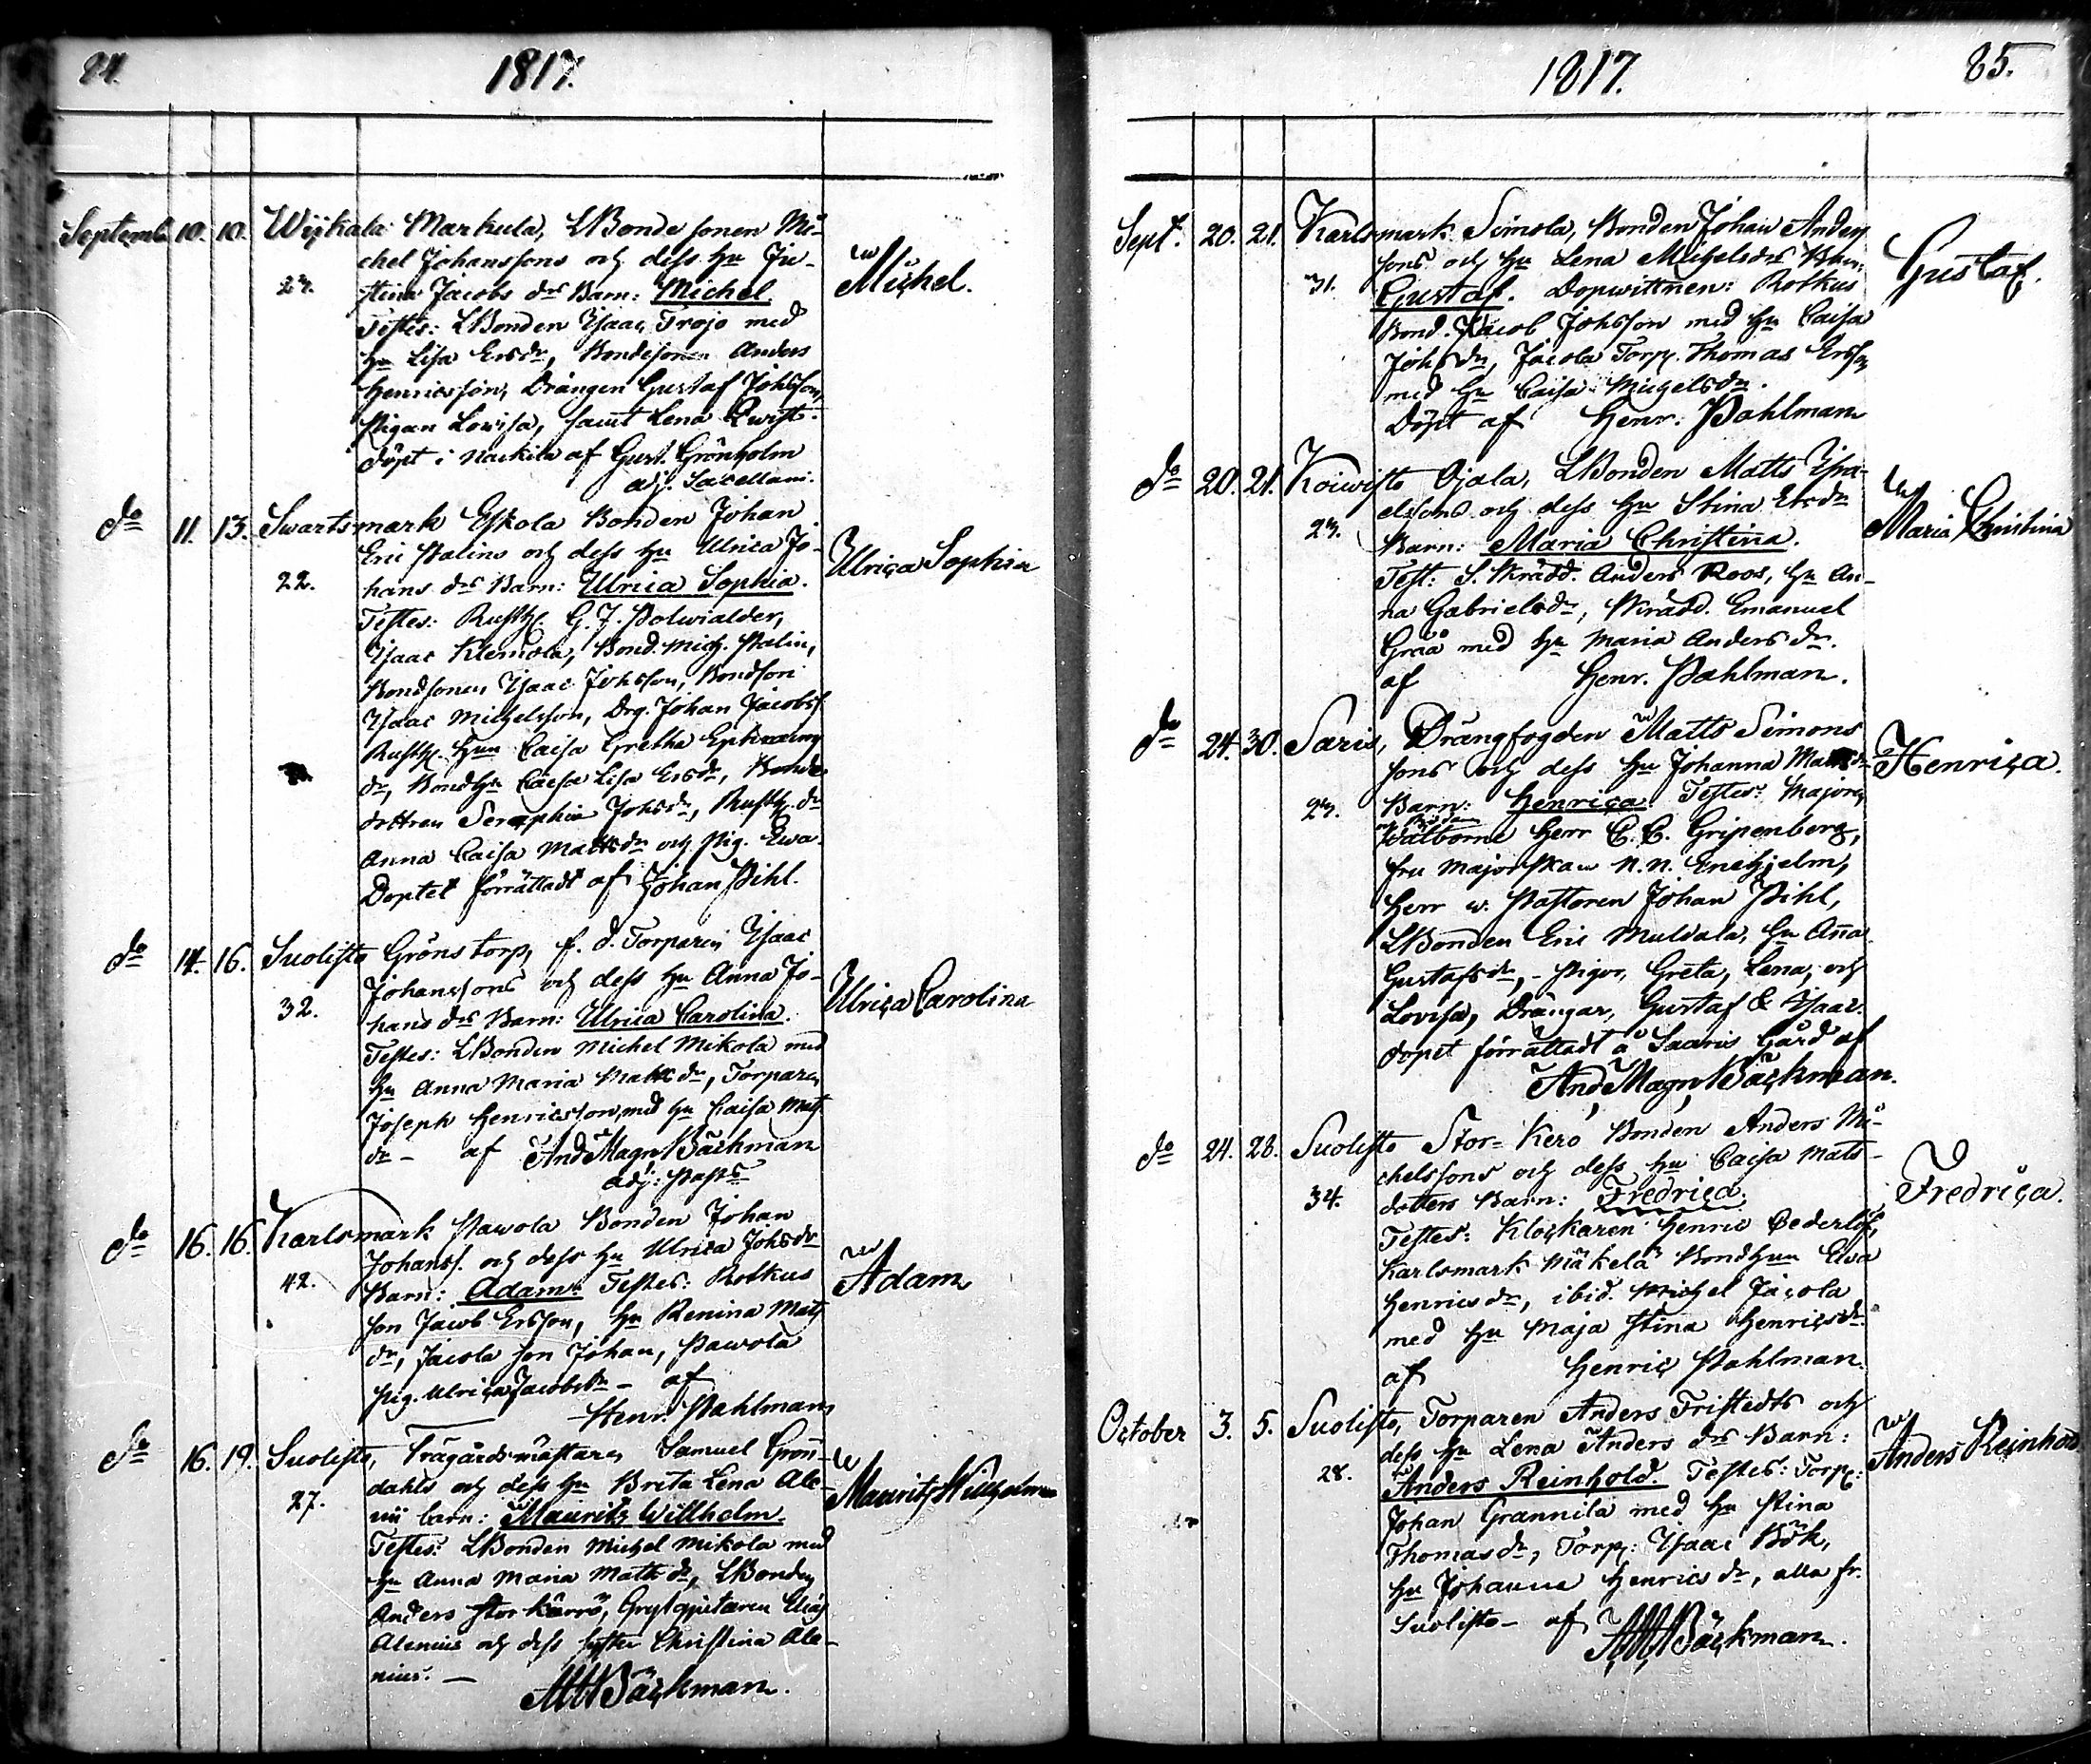 84.
1817.
Septemb. 10. 10. Wijkala Markula, LBonde sonen Mi-
chel Johanssons och dess hu Ju-
23. stina Jacobs dr Barn: Michel. Michel.
Testes: LBonden Isaac Trojo med
hu Lisa Ersdr, Bondesonen Anders
Henricsson, Drängen Gustaf Johsson,
Pigan Lowisa, samt Lena Qwist.
döpt i Nackila af Gust. Grönholm
adj. Sacellani.
do 11. 13. Swartsmark Eskola Bonden Johan
Eric Stalins och dess hu Ulrica Jo- Ulrica Sophia
22. hans drs Barn: Ulrica Sophia.
Testes: Rusth. G. J. Polwialder,
Isaac Klemola, Bond. Mich. Stalin,
Bondsonen Isaac Johsson, Bondson
Isaac Michelsson, Drg. Johan Jacobss.
Rusth. hun Caisa Gretha
dr, Bondhu Caisa Lisa Ersdr, Bonde
dottren Seraphia Johsdr, Rusth. dr
Anna Caisa Mattsdr och Pig. Ewa.
Doptet förrättadt af Johan Pihl.
do 14. 16. Suolisto Grönstorp, f. d. Torparen Isaac
Johanssons och dess hu Anna Jo- Ulrica Carolina
32. hans drs Barn: Ulrica Carolina.
Testes: LBonden Michel Mikola med
hu Anna Maria Matts dr, Torparen
Joseph Henricsson, med hu Caisa Mats
dr - af And Magn Bäckman
adj: Past:
do 16. 16. Karlsmark Pawola Bonden Johan
Johanss. och dess hu Ulrica Johsdr Adam
42. Barn: Adam. Testes: Rotkus
son Jacob Ersson, hu Renina Mats
dr, Jacola son Johan, Pawola
Pig. Ulrica Jacobsdr - af
Henr. Pahlman
do 16. 19. Suolisto, Trägårdsmästaren Samuel Grön-
dahls och dess hu Brita Lena Ale- Mauritz Willhelm
27. nii barn: Mauritz Willhelm.
Testes: LBonden Michel Mikola med
hu Anna Maria Matts dr, LBonden
Anders Storkärrö, Elias
Alenius och dess syster Christina Ale-
nius. -
AMBäckman.
1817. 85.
Sept. 20. 21. Karlsmark Simola, Bonden Johan Anders
sons och hu Lena Michelsdrs Barn: Gustaf.
31. Gustaf. Dopwittnen: Rotkus
Bond. Jacob Johsson med hu Caisa
Johsdr, Jacola Torp. Thomas Ersson
med hu Caisa Michelsdr.
Döpt af Henr: Pahlman
do 20. 21. Koiwisto Ojala, LBonden Matts Isra-
elsons och dess hu Stina Ersdr Maria Christina
23. Barn: Maria Christina.
Test: S. Skrädd. Anders Roos, hu An-
na Gabrielsdr, Skrädd. Emanuel
Gråå med hu Maria Anders dr.
af Henr. Pahlman.
do 24. 30. Saris, Drängfogden Matts Simons
sons och dess hu Johanna Mattsdr Henrica.
23. Barn: Henrica. Testes: Majoren
Wälborne Herr C. C. Gripenberg,
fru Majorskan N. N. Enehjelm,
Herr w. Pastoren Johan Pihl,
LBonden Eric Muldala, hu Anna
Gustafsdr, - Pigor, Greta, Lena, och
Lovisa, Drängar, Gustaf & Isaac.
dopet förrättadt å Saaris Gård af
And Magn Bäckman.
do 24. 28. Suolisto Stor-Kero Bonden Anders Mi-
chelssons och dess hu Caisa Mats- Fredrica.
34. dotters Barn: Fredrica.
Testes: Klockaren Henric Cederlöf,
Karlsmark Mäkelä Bondhun Ewa
Henricsdr, ibid. Michel Jacola
med hu Maja Stina Henricsdr
af Henric Pahlman.
October 3. 5. Suolisto, Torparen Anders Fristedts och
dess hu Lena Anders drs Barn: Anders Reinhold
28. Anders Reinhold. Testes: Torp:
Johan Grannila med hu Stina
Thomasdr, Torp: Isaac Bök,
hu Johanna Henrics dr, alla fr.
Suolisto - af AMBäckman.